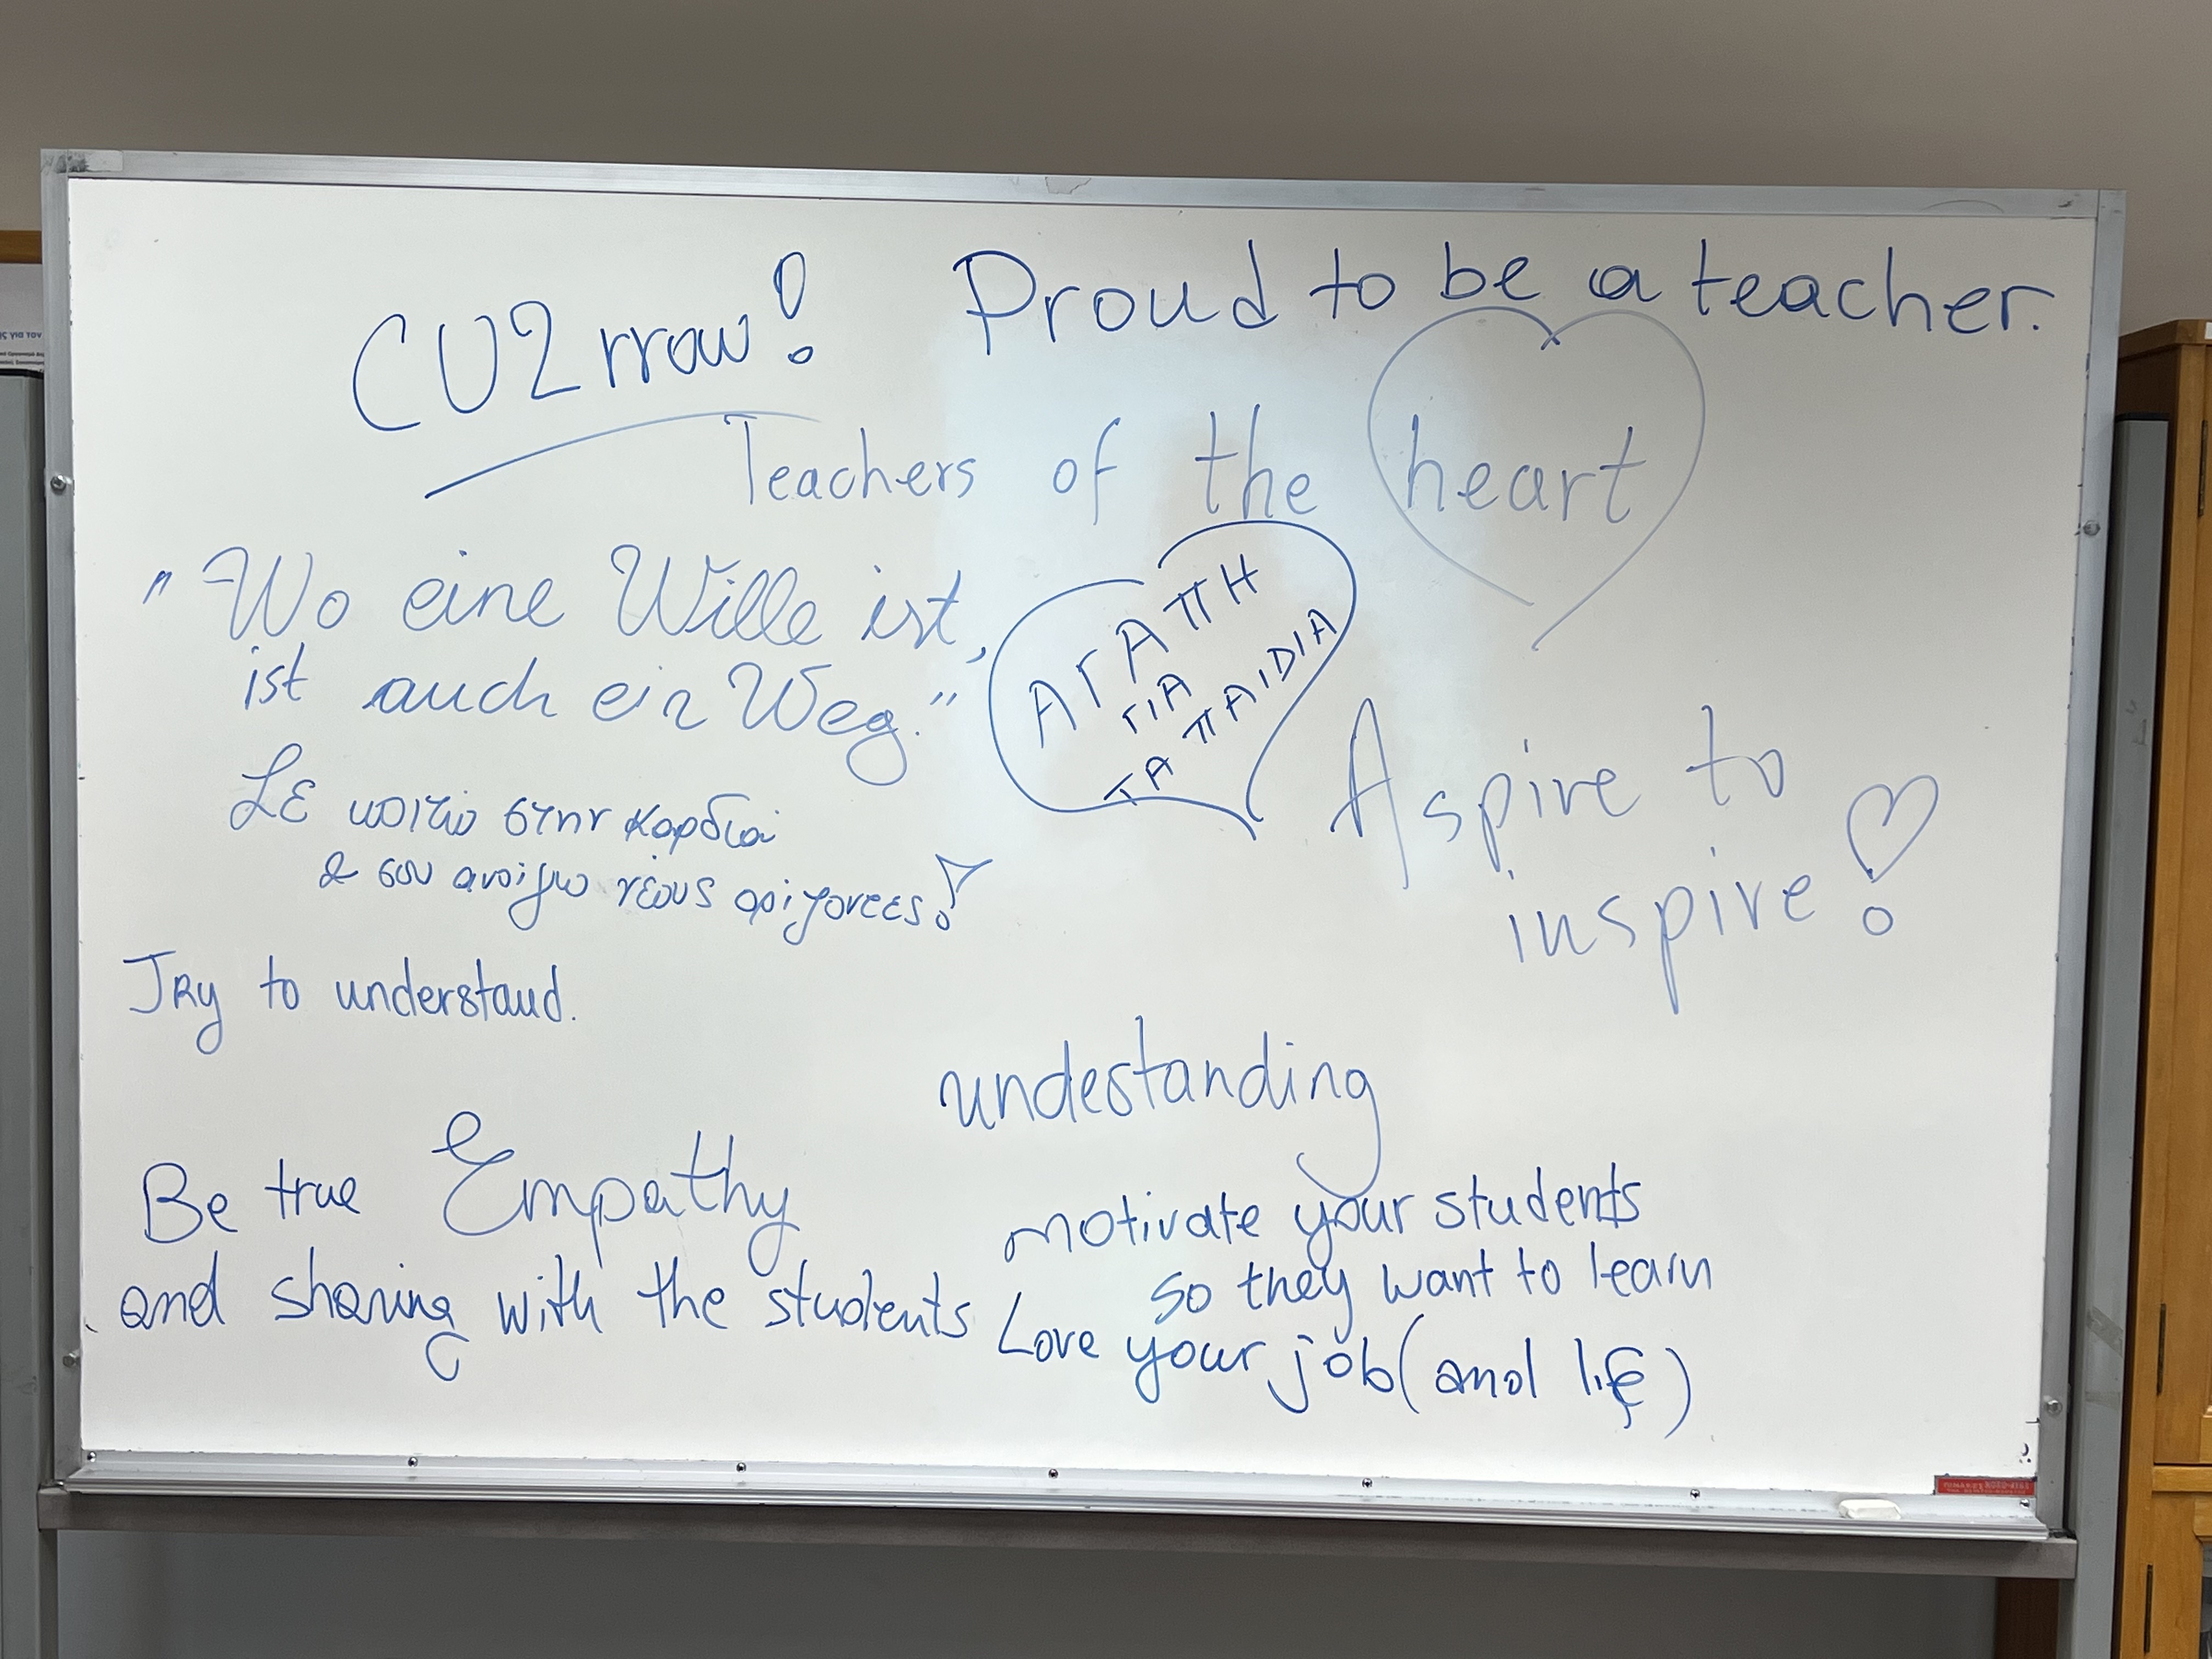 CU2rrow!
Proud to be a teacher.
Teachers of the heart
"Wo eine Wille ist,
ist auch ein Weg."
ΑΓΑΠΗ
ΓΙΑ
ΤΑ ΠΑΙDΙΑ
Σε κοιτώ στην καρδιά
& σου ανοίγω νέους ορίζοντες!
Aspire to
inspire!
Try to understand.
undestanding
Be true Empathy
and sharing with the students
motivate your students
so they want to learn
Love your job (and life)